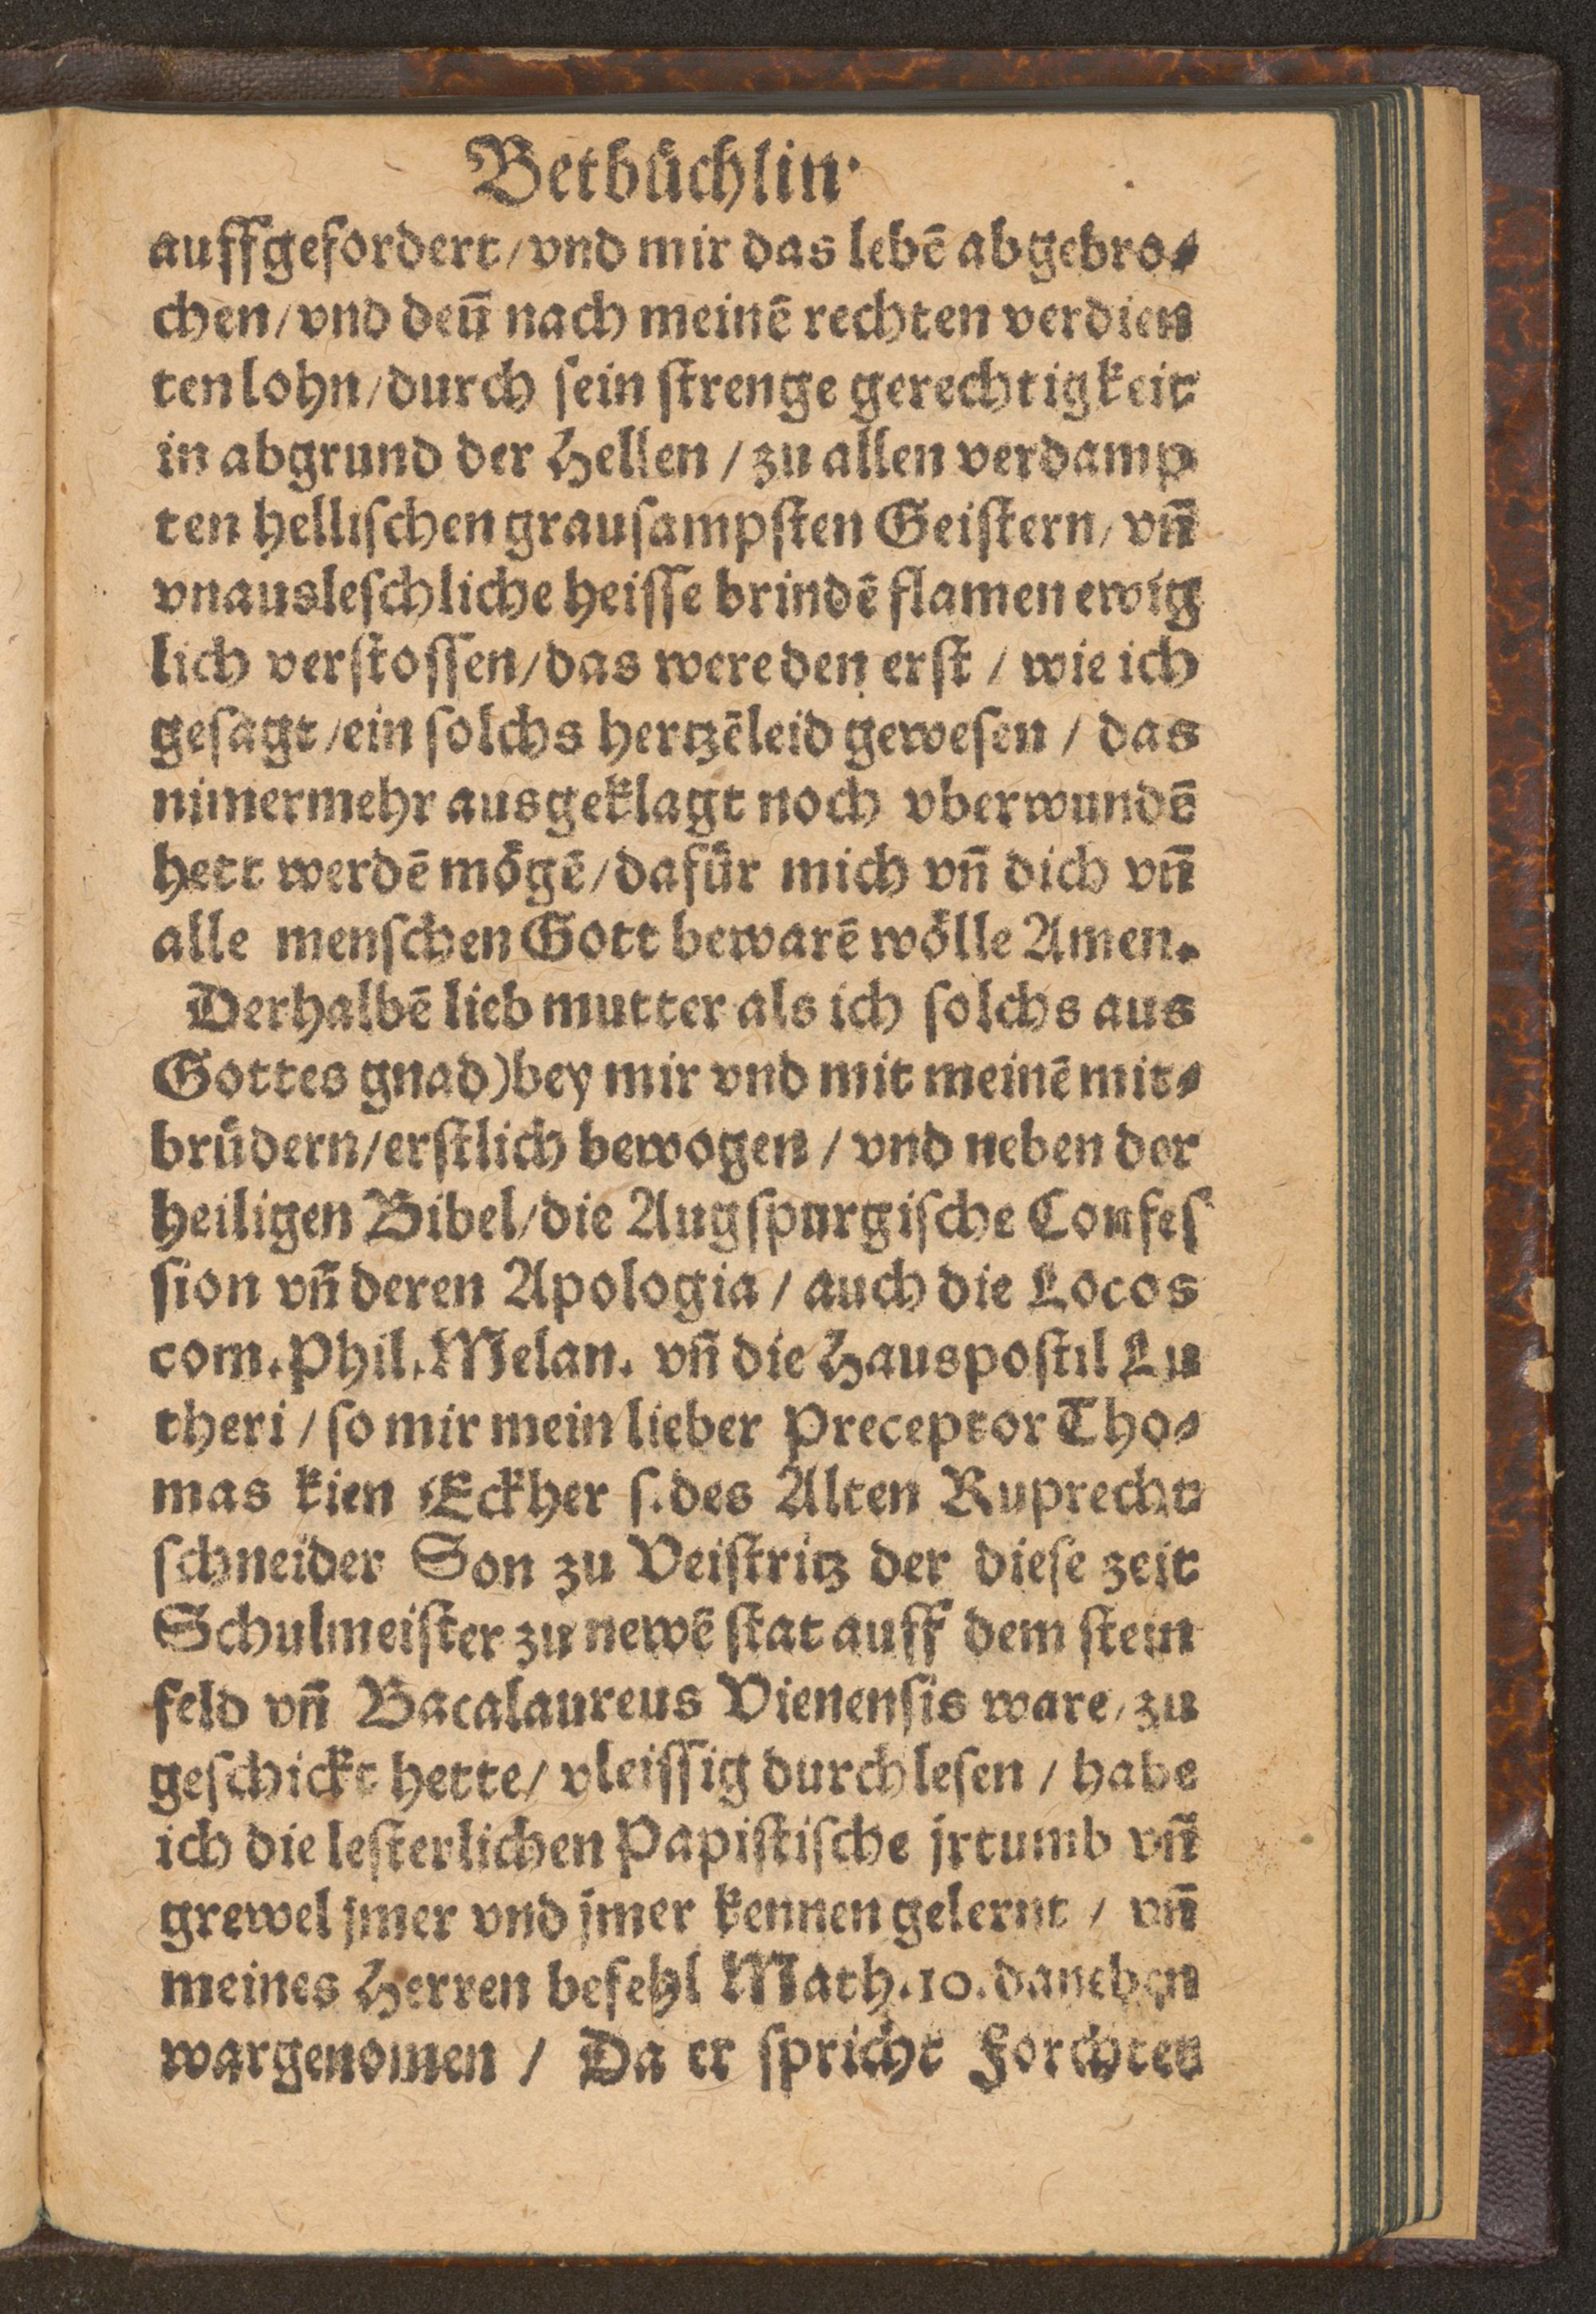 Betbuͤchlin.
auffgefordert/vnd mir das lebē abgebro⸗
chen/vnd deñ nach meinē rechten verdien
ten lohn/durch ſein ſtrenge gerechtigkeit
in abgrund der Hellen / zu allen verdamp
ten helliſchen grauſampſten Geiſtern/ vñ
vnausleſchliche heiſſe brindē flamen ewig
lich verſtoſſen/das were den erſt / wie ich
geſagt/ein ſolchs hertzēleid geweſen / das
nimermehr ausgeklagt noch vberwundē
hett werdē moͤgē/dafuͤr mich vñ dich vñ
alle menſchen Gott bewarē woͤlle Amen.
Derhalbē lieb mutter als ich ſolchs aus
Gottes gnad)bey mir vnd mit meinē mit⸗
bruͤdern/erſtlich bewogen / vnd neben der
heiligen Bibel/die Augſpurgiſche Confeſ
ſion vñ deren Apologia / auch die Locos
com.Phil.Melan. vñ die Hauspoſtil Lu
theri / ſo mir mein lieber Preceptor Tho⸗
mas kien Eckher ſ.des Alten Ruprecht
ſchneider Son zu Veiſtritz der dieſe zeit
Schulmeiſter zu newē ſtat auff dem ſtein
feld vñ Bacalaureus Vienenſis ware/zu
geſchickt hette/ vleiſſig durchleſen / habe
ich die leſterlichen Papiſtiſche jrtumb vñ
grewel jmer vnd jmer kennen gelernt / vñ
meines Herren befehl Math.10.daneben
wargenomen / Da er ſpricht Forchten